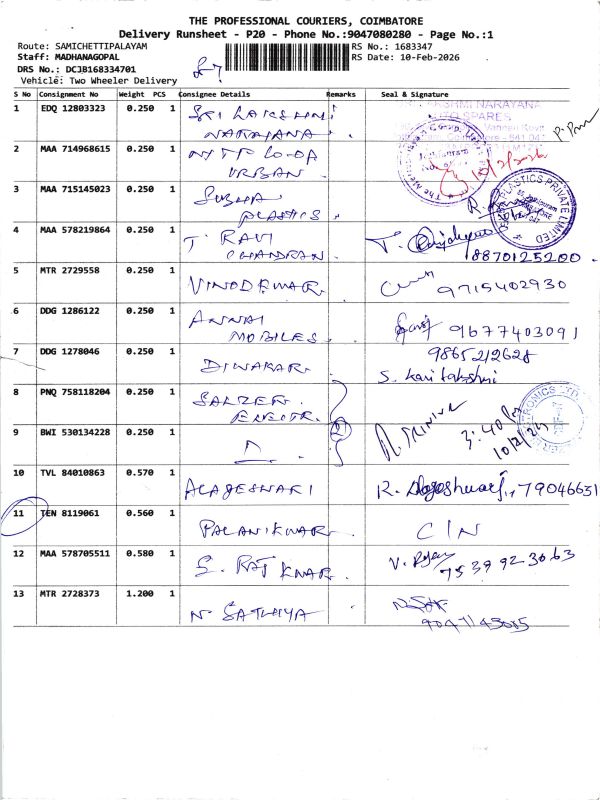 THE PROFESSIONAL COURIERS, COIMBATORE
Delivery Runsheet - P20 - Phone No.:9047080280 - Page No.:1
Route: SAMICHETTIPALAYAM RS No.: 1683347
Staff: MADHANAGOPAL RS Date: 10-Feb-2026
DRS No.: DCJB168334701
Vehicle: Two Wheeler Delivery
S No Consignment No Weight PCS Consignee Details Remarks Seal & Signature
1 EDQ 12803323 0.250 1 SRI LAKSHMI
NARAYANA
2 MAA 714968615 0.250 1 NTTF CO-OP
URBAN
10/2/2026
3 MAA 715145023 0.250 1 SUBHA
PLASTICS
PLASTICS PRIVATE LIMITED
4 MAA 578219864 0.250 1 T. RAVI
CHANDRAN
T. 8870125200
5 MTR 2729558 0.250 1 VINODKUMAR 9715402930
6 DDG 1286122 0.250 1 ANNAI
MOBILES 9677403091
7 DDG 1278046 0.250 1 DIWAKAR 9865212628
S. Karilakshmi
8 PNQ 758118204 0.250 1 SALZER
ELECTR.
9 BWI 530134228 0.250 1 (2) SRINIVA 3:40 Pm
10/2/26
10 TVL 84010863 0.570 1 ALAGESWARI R. Alageshwari, 79046631
11 TEN 8119061 0.560 1 PALANIKUMAR C/N
12 MAA 578705511 0.580 1 S. RAJ KUMAR V. 7539923063
13 MTR 2728373 1.200 1 N. SATHIYA
9047145085